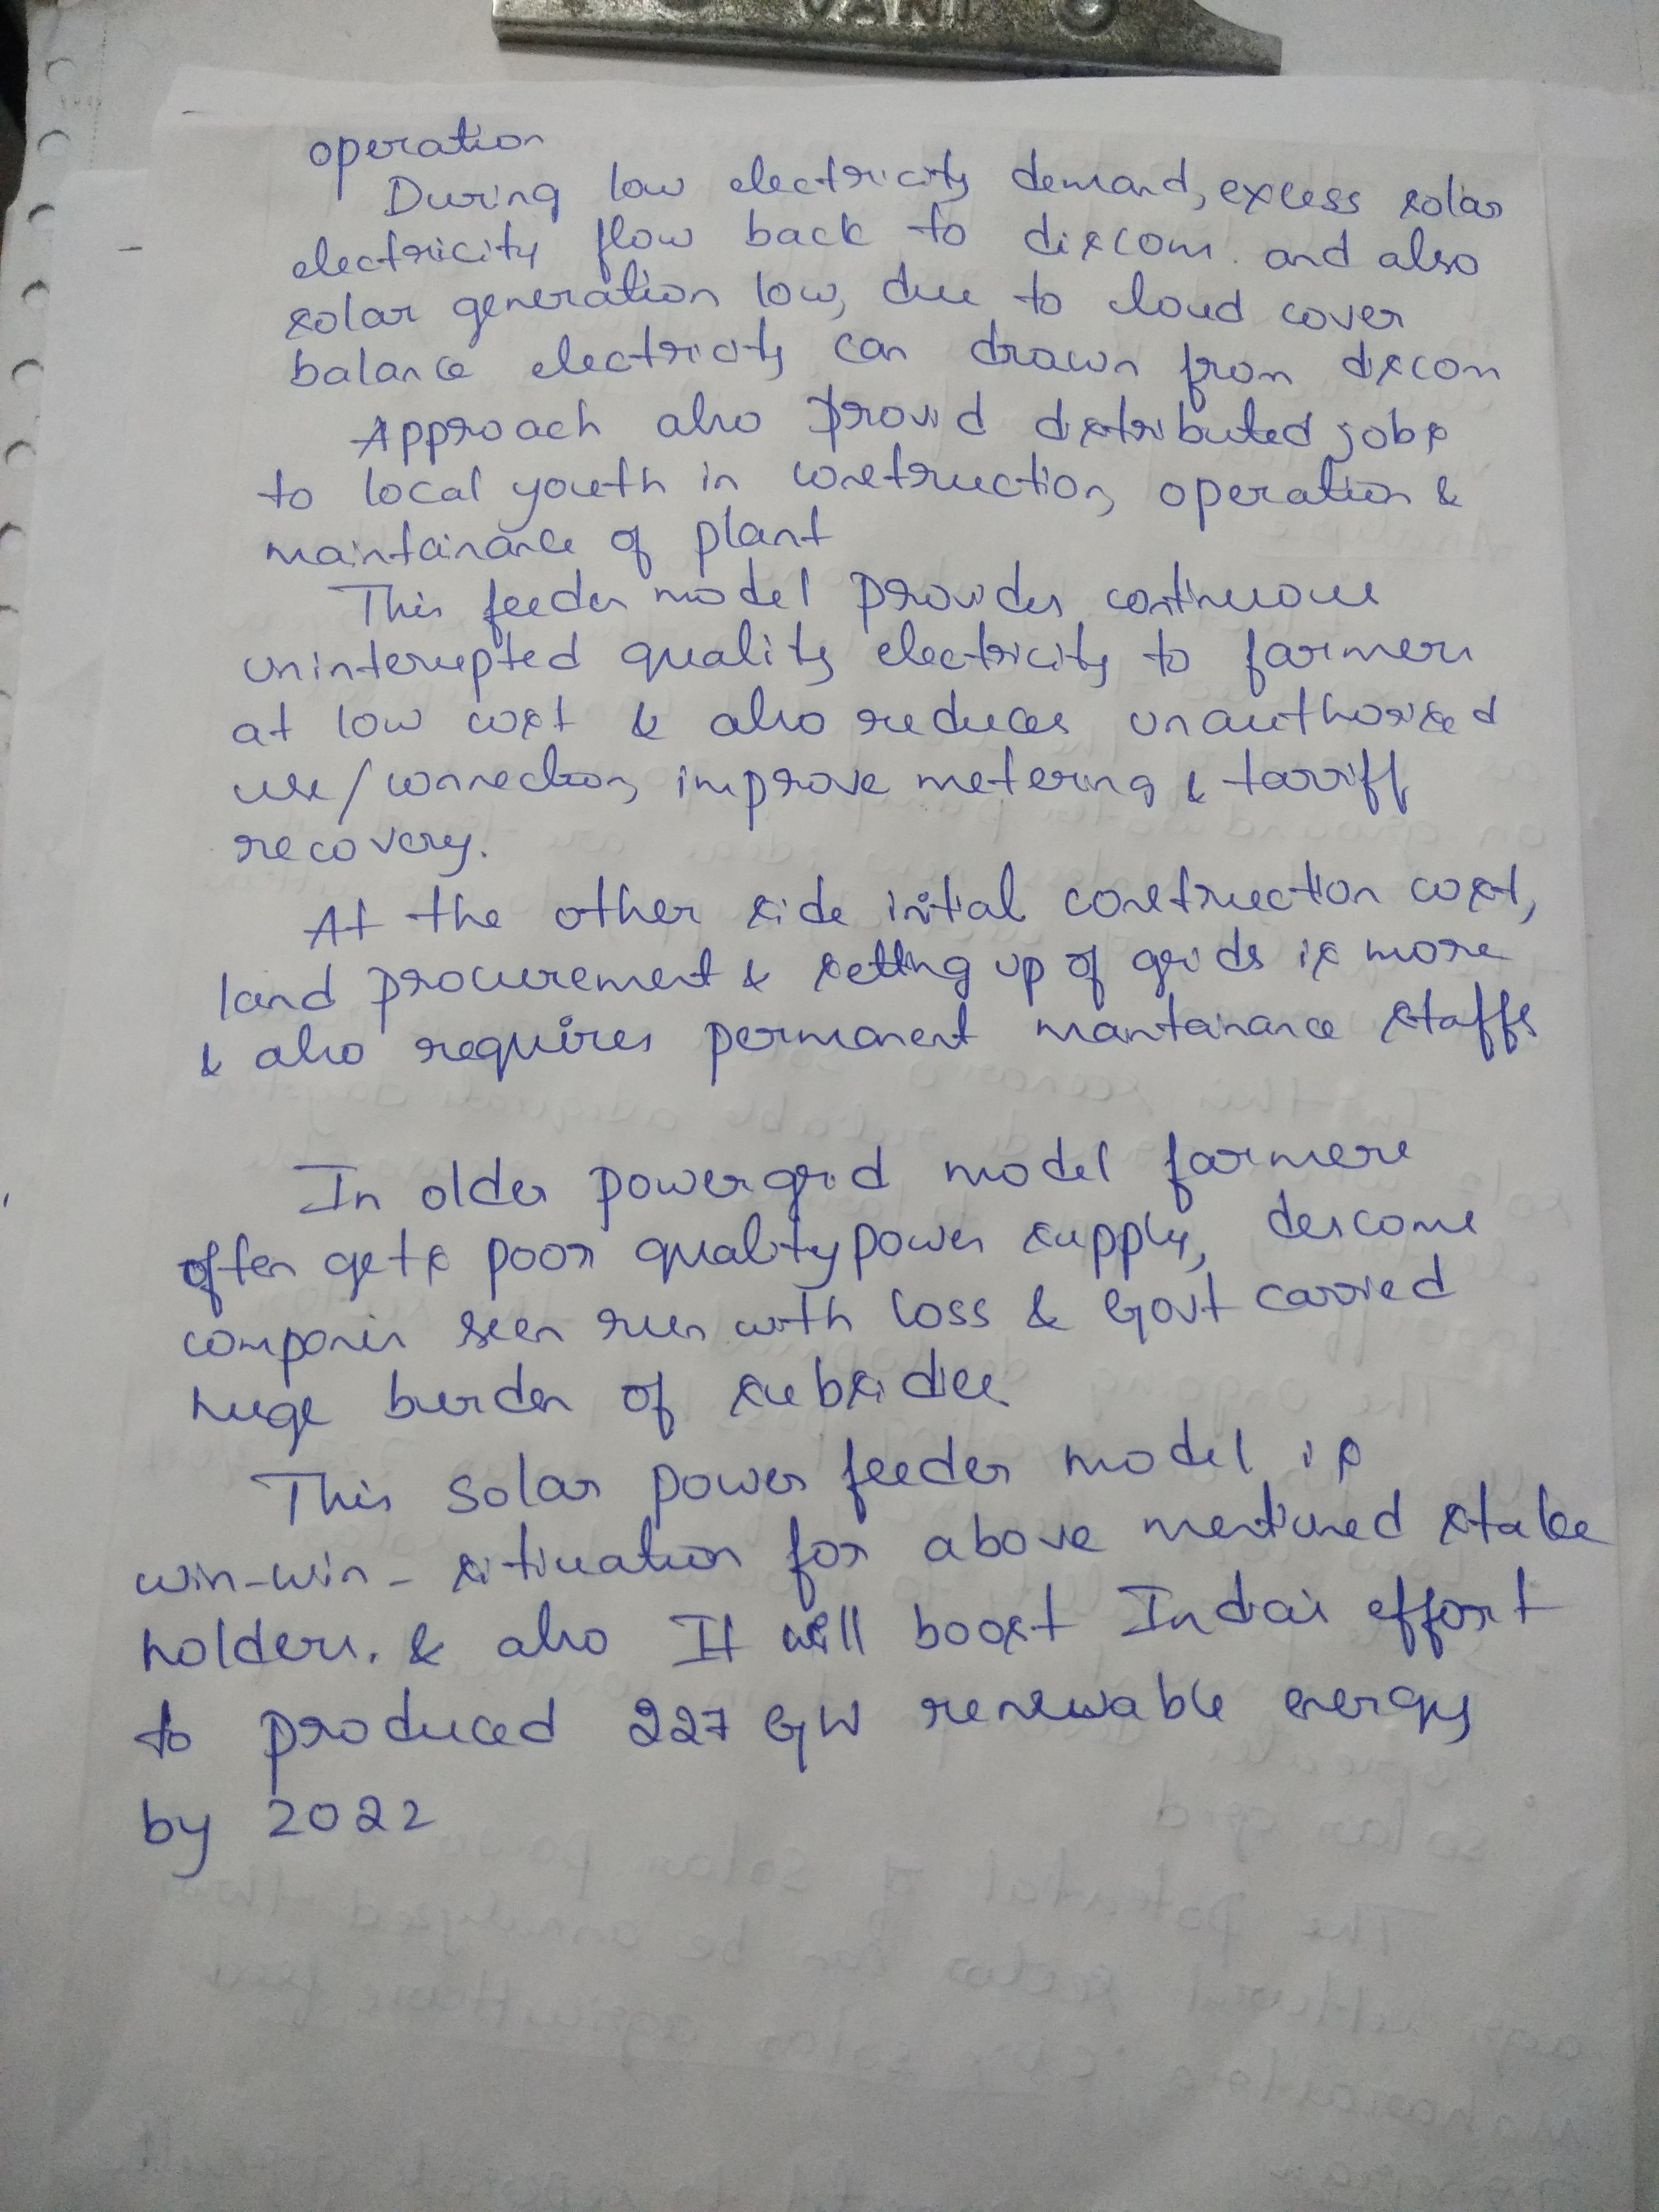 VANI
operation
During low electricity demand, excess solar
electricity flow back to discom. and also
solar generation low, due to cloud cover
balance electricity can drawn from discom
Approach also provid distributed jobs
to local youth in construction, operation &
maintainance of plant
This feeder model provides continuous
uninterupted quality electricity to farmers
at low cost & also reduces unauthorised
use/connection, improve metering & tarriff
recovery.
At the other side initial construction cost,
land procurement & setting up of grids is more
& also requires permanent mantainance staffs
In older powergrid model farmers
often gets poor quality power supply, descoms
companies seen run with loss & Govt carried
huge burden of subsidies
This solar power feeder model is
win-win- sitiuation for above mentioned stake
holders. & also It will boost India's effort
to produced 227 GW renewable energy
by 2022